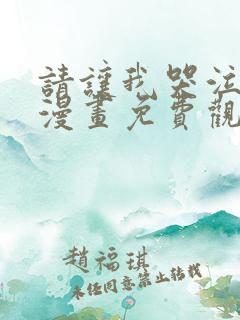 請讓我哭泣
漫畫免費觀
趙福琪
未经同意禁止转载